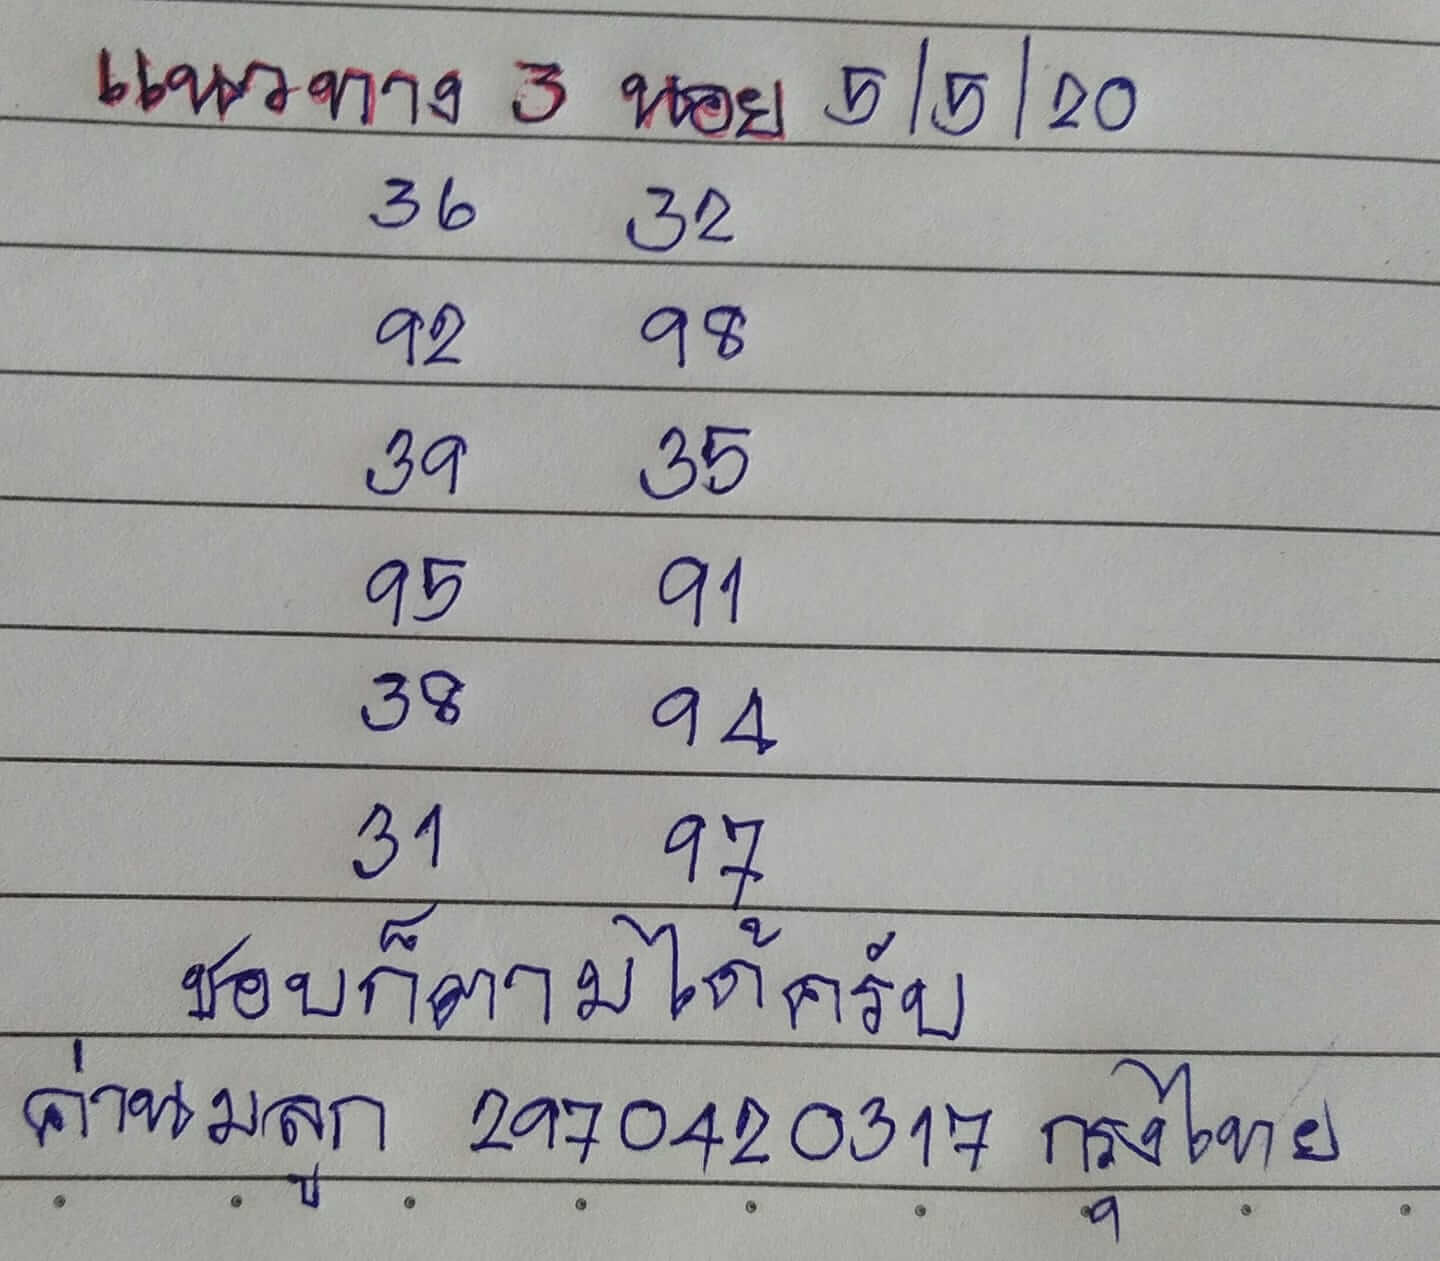 แนวทาง 3 นอย 5/5/20
36 32
92 98
39 35
95 91
38 94
31 97
ชอบก็ตามได้ครับ
ค่านมลูก 2970420317 กรุงไทย